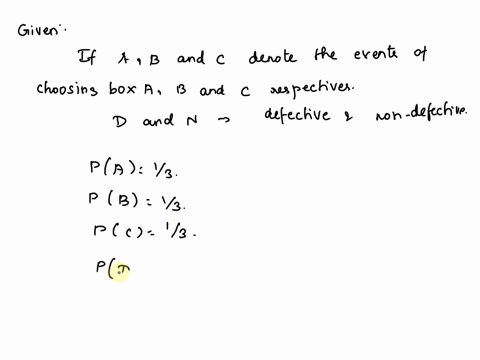 Given:
If A, B and C denote the events of
choosing box A, B and C respectives.
D and N → defective & non-defective.
P(A): 1/3.
P(B) = 1/3.
P(C) = 1/3.
P(